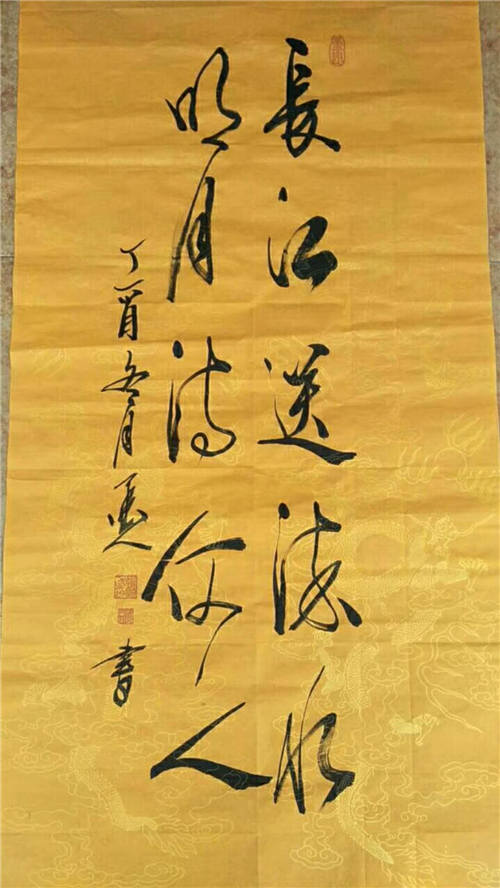 長江送流水
明月待何人
丁酉冬月
書